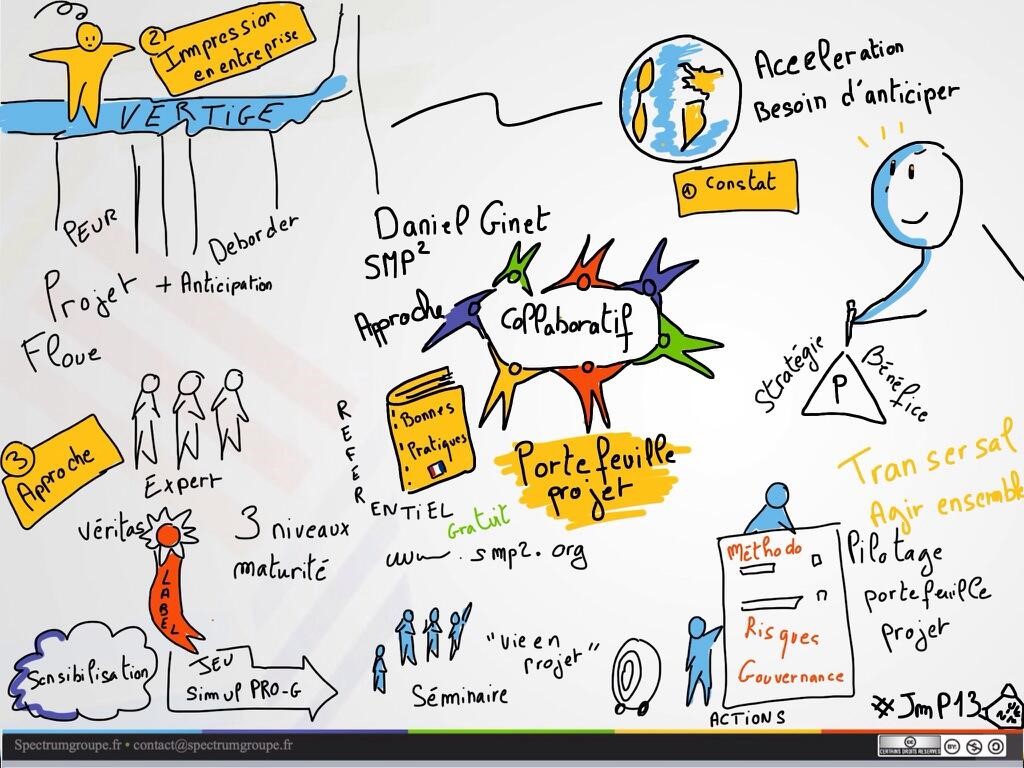 2
Impression
en entreprise
VERTIGE
PEUR
Deborder
Projet
+ Anticipation
Floue
Acceleration
Besoin d'anticiper
1 Constat
Daniel Ginet
SMP²
Approche
Collaboratif
Stratégie
P
Bénéfice
3
Approche
Expert
REFER
ENTIEL
Bonnes
Pratiques
Portefeuille
projet
Gratuit
www.smp2.org
Transersal
Agir ensemble
véritas
LABEL
3 niveaux
maturité
Méthodo
Risques
Gouvernance
ACTIONS
Pilotage
portefeuille
projet
Sensibilisation
JEU
Simul PRO-G
Séminaire
"vie en
projet"
#JMP13
Spectrumgroupe.fr • contact@spectrumgroupe.fr
cc
CERTAINS DROITS RESERVES
BY: